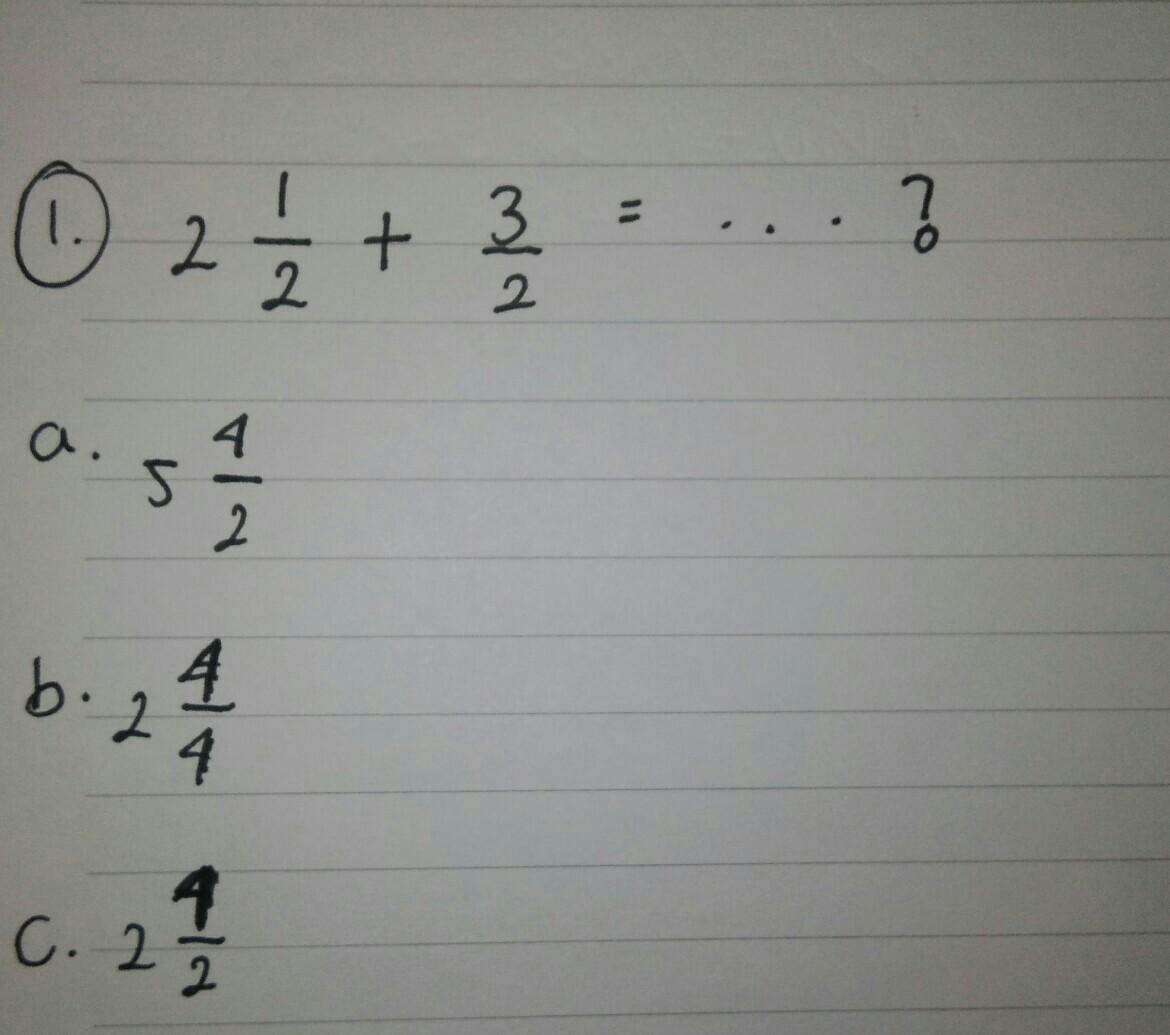 1. 2 1/2 + 3/2 = ... ?
a. 5 4/2
b. 2 4/4
c. 2 4/2